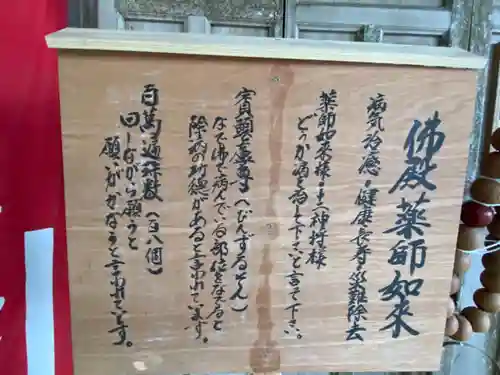 佛殿薬師如来
病気治癒・健康長寿・災難除去
薬師如来様・十二神将様
どうか病を治して下さいと言て下さい。
賓頭盧尊(びんずるそん)
なで佛と病んでいる部位をなでると
除病の功徳があると言われています。
百萬遍珠数(百八個)
回しながら願うと
願いがかなうと言われています。